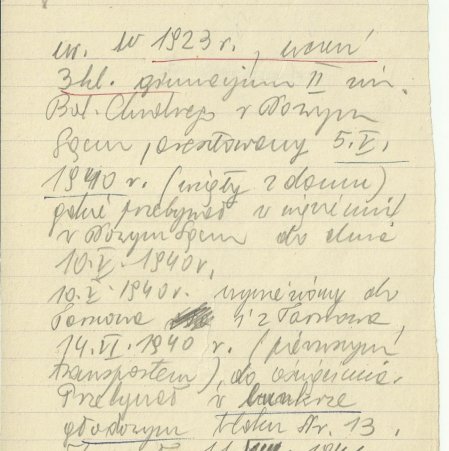 ur. w 1923 r., uczeń
3 kl. gimnazjum II im.
Bol. Chrobrego w Nowym
Sączu, aresztowany 5.V.
1940 r. (wzięty z domu)
gdzie przebywał w więzieniu
w Nowym Sączu do dnia
10.V.1940r.
10.V.1940r. wywieziony do
Tarnowa i z Tarnowa,
14.VI.1940 r. (pierwszym
transportem), do Oświęcimia.
Przebywał w bunkrze
głodowym bloku Nr. 13.